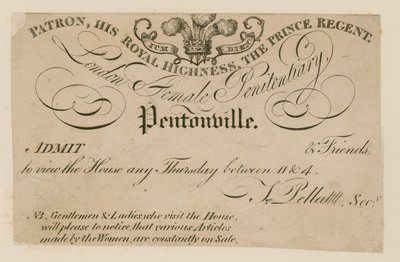 PATRON, HIS ROYAL HIGHNESS, THE PRINCE REGENT.
ICH DIEN
London Female Penitentiary,
Pentonville.
ADMIT & Friends,
to view the House any Thursday between 11 & 4.
Secy.
NB. Gentlemen & Ladies, who visit the House,
will please to notice, that various Articles
made by the Women, are constantly on Sale.